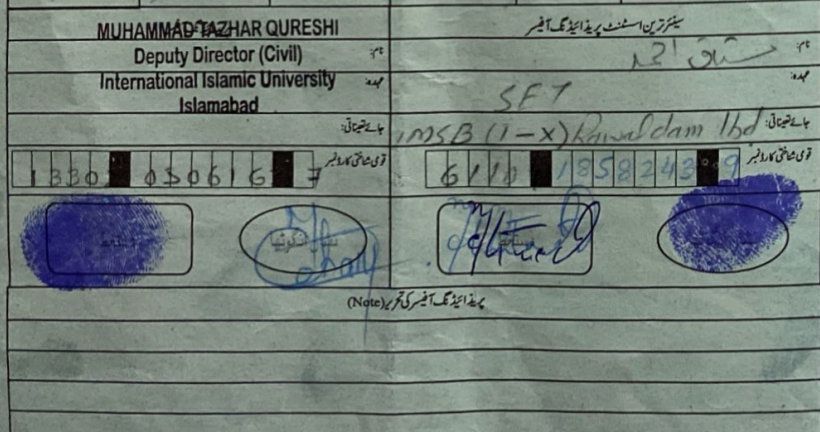 MUHAMMAD TAZHAR QURESHI
Deputy Director (Civil)
International Islamic University
Islamabad
نام:
عہدہ:
جائے تعیناتی:
قومی شناختی کارڈ نمبر
050616 7
سینئر ترین اسسٹنٹ پریذائیڈنگ آفیسر
نام: مشتاق احمد
عہدہ: SET
جائے تعیناتی: IMSB (I-X) Rawal dam Ibd
قومی شناختی کارڈ نمبر
6110 1858243 9
پریذائیڈنگ آفیسر کی تحریر (Note)